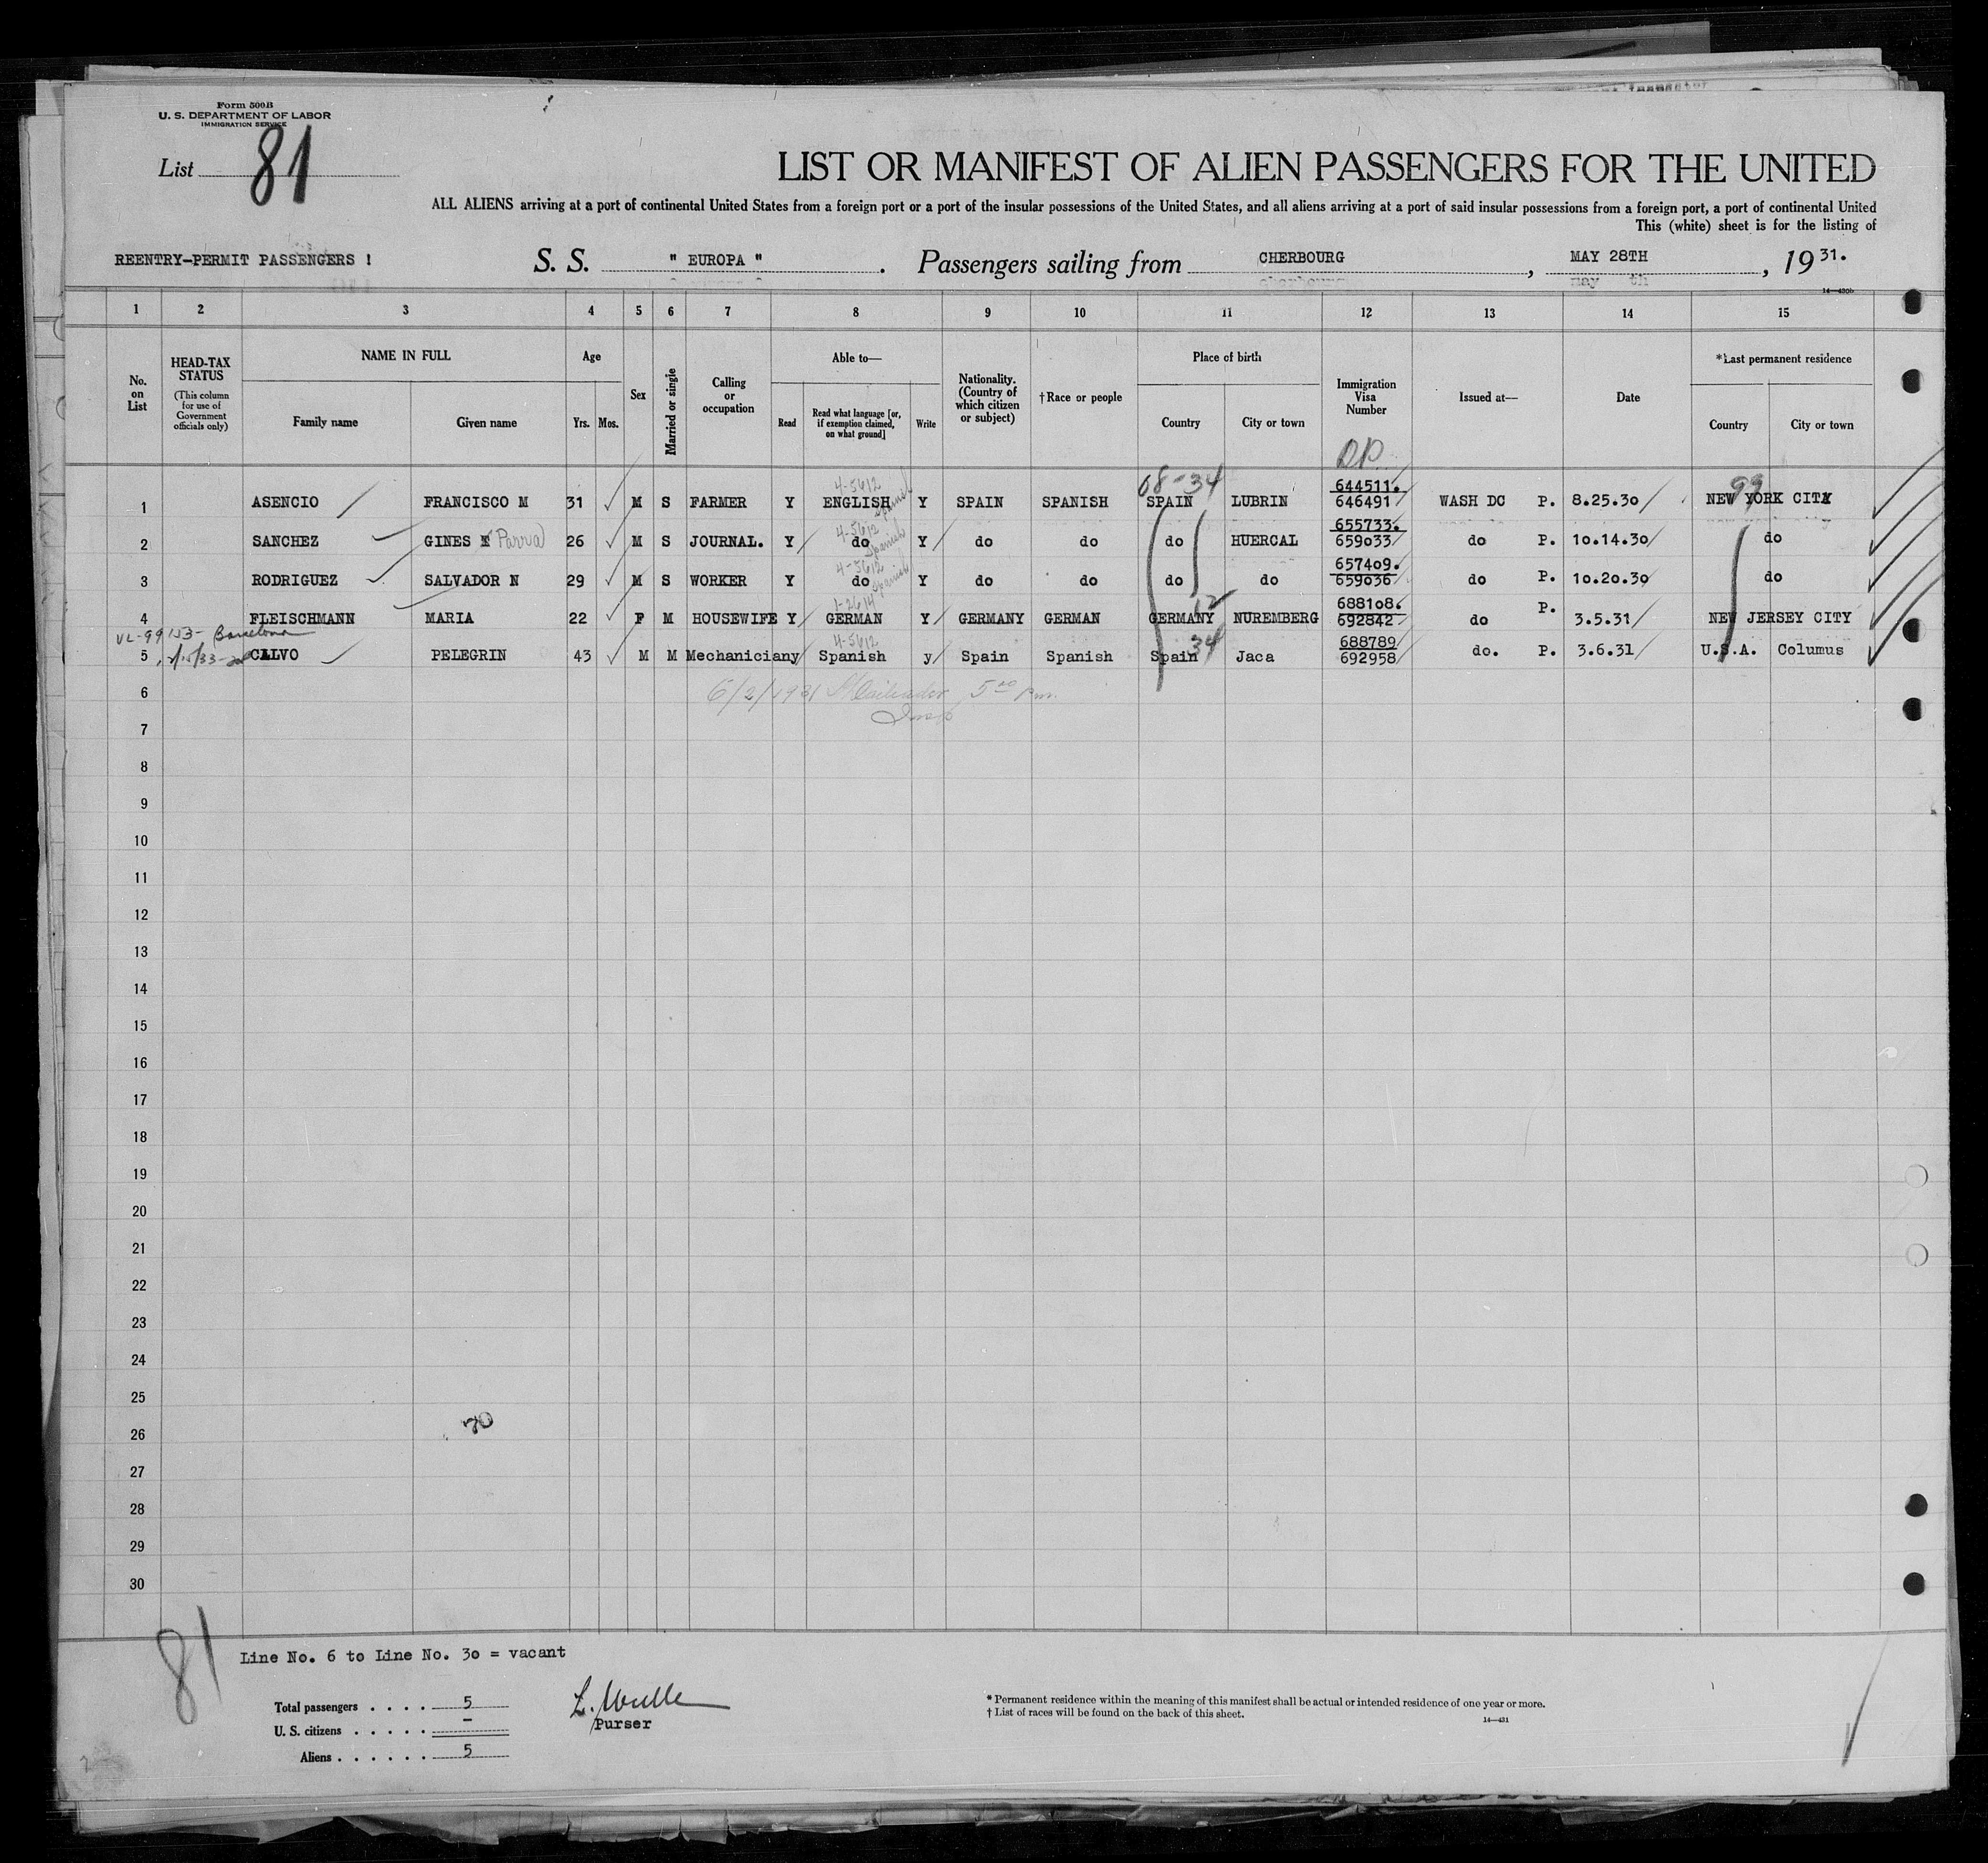 Form 500B
U. S. DEPARTMENT OF LABOR
IMMIGRATION SERVICE
List 81
LIST OR MANIFEST OF ALIEN PASSENGERS FOR THE UNITED
ALL ALIENS arriving at a port of continental United States from a foreign port or a port of the insular possessions of the United States, and all aliens arriving at a port of said insular possessions from a foreign port, a port of continental United
This (white) sheet is for the listing of
REENTRY-PERMIT PASSENGERS ! S. S. " EUROPA ". Passengers sailing from CHERBOURG, MAY 28TH, 19 31.
14—430b
1 2 3 4 5 6 7 8 9 10 11 12 13 14 15
No. on List
HEAD-TAX STATUS (This column for use of Government officials only)
NAME IN FULL Family name Given name
Age Yrs. Mos.
Sex
Married or single
Calling or occupation
Able to— Read Read what language [or, if exemption claimed, on what ground] Write
Nationality. (Country of which citizen or subject)
† Race or people
Place of birth Country City or town
Immigration Visa Number
Issued at—
Date
*Last permanent residence Country City or town
4-5612 Spanish 08-34 644511. 99
1 ASENCIO FRANCISCO M 31 M S FARMER Y ENGLISH Y SPAIN SPANISH SPAIN LUBRIN 646491 WASH DC P. 8.25.30 NEW YORK CITY
4-5612 Spanish 655733.
2 SANCHEZ GINES Parra 26 M S JOURNAL. Y do Y do do do HUERCAL 659033 do P. 10.14.30 do
4-5612 Spanish 657409.
3 RODRIGUEZ SALVADOR N 29 M S WORKER Y do Y do do do do 659036 do P. 10.20.30 do
1-2614 12 688108.
4 FLEISCHMANN MARIA 22 F M HOUSEWIFE Y GERMAN Y GERMANY GERMAN GERMANY NUREMBERG 692842 do P. 3.5.31 NEW JERSEY CITY
VL-99153- Barcelona 4-5612 34 688789
5 CALVO PELEGRIN 43 M M Mechanician y Spanish y Spain Spanish Spain Jaca 692958 do. P. 3.6.31 U.S.A. Columus
6 6/2/1931 5 00 Pm.
Insp
7
8
9
10
11
12
13
14
15
16
17
18
19
20
21
22
23
24
25
26
27
28
29
30
81
Line No. 6 to Line No. 30 = vacant
Total passengers . . . . 5
U. S. citizens . . . . . –
Aliens . . . . . . 5
Purser
* Permanent residence within the meaning of this manifest shall be actual or intended residence of one year or more.
† List of races will be found on the back of this sheet.
14—431